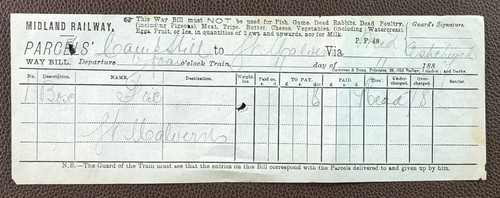 MIDLAND RAILWAY.
☞ This Way Bill must NOT be used for Fish, Game, Dead Rabbits, Dead Poultry, (including Pigeons), Meat, Tripe, Butter, Cheese, Vegetables, (including Watercress), Eggs, Fruit, or Ice, in quantities of 2 cwt. and upwards, nor for Milk.
Guard's Signature.
P.P./48
PARCELS' to Gt Malvern Via
WAY BILL. Departure o'clock Train, day of 188
London; and Derby.
No. DESCRIPTION. NAME. Destination Weight. lbs. Paid on. s. d. TO PAY. £ s. d. PAID. £ s. d. Under-charged. Over-charged.
1 Box 8 8
Gt Malvern
N.B.—The Guard of the Train must see that the entries on this Bill correspond with the Parcels delivered to and given up by him.